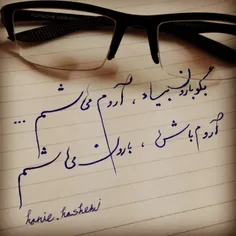 بگو بارون بیاد ، آروم می‌شم ...
آروم باش ، بارون می‌شم
hanie.hashemi